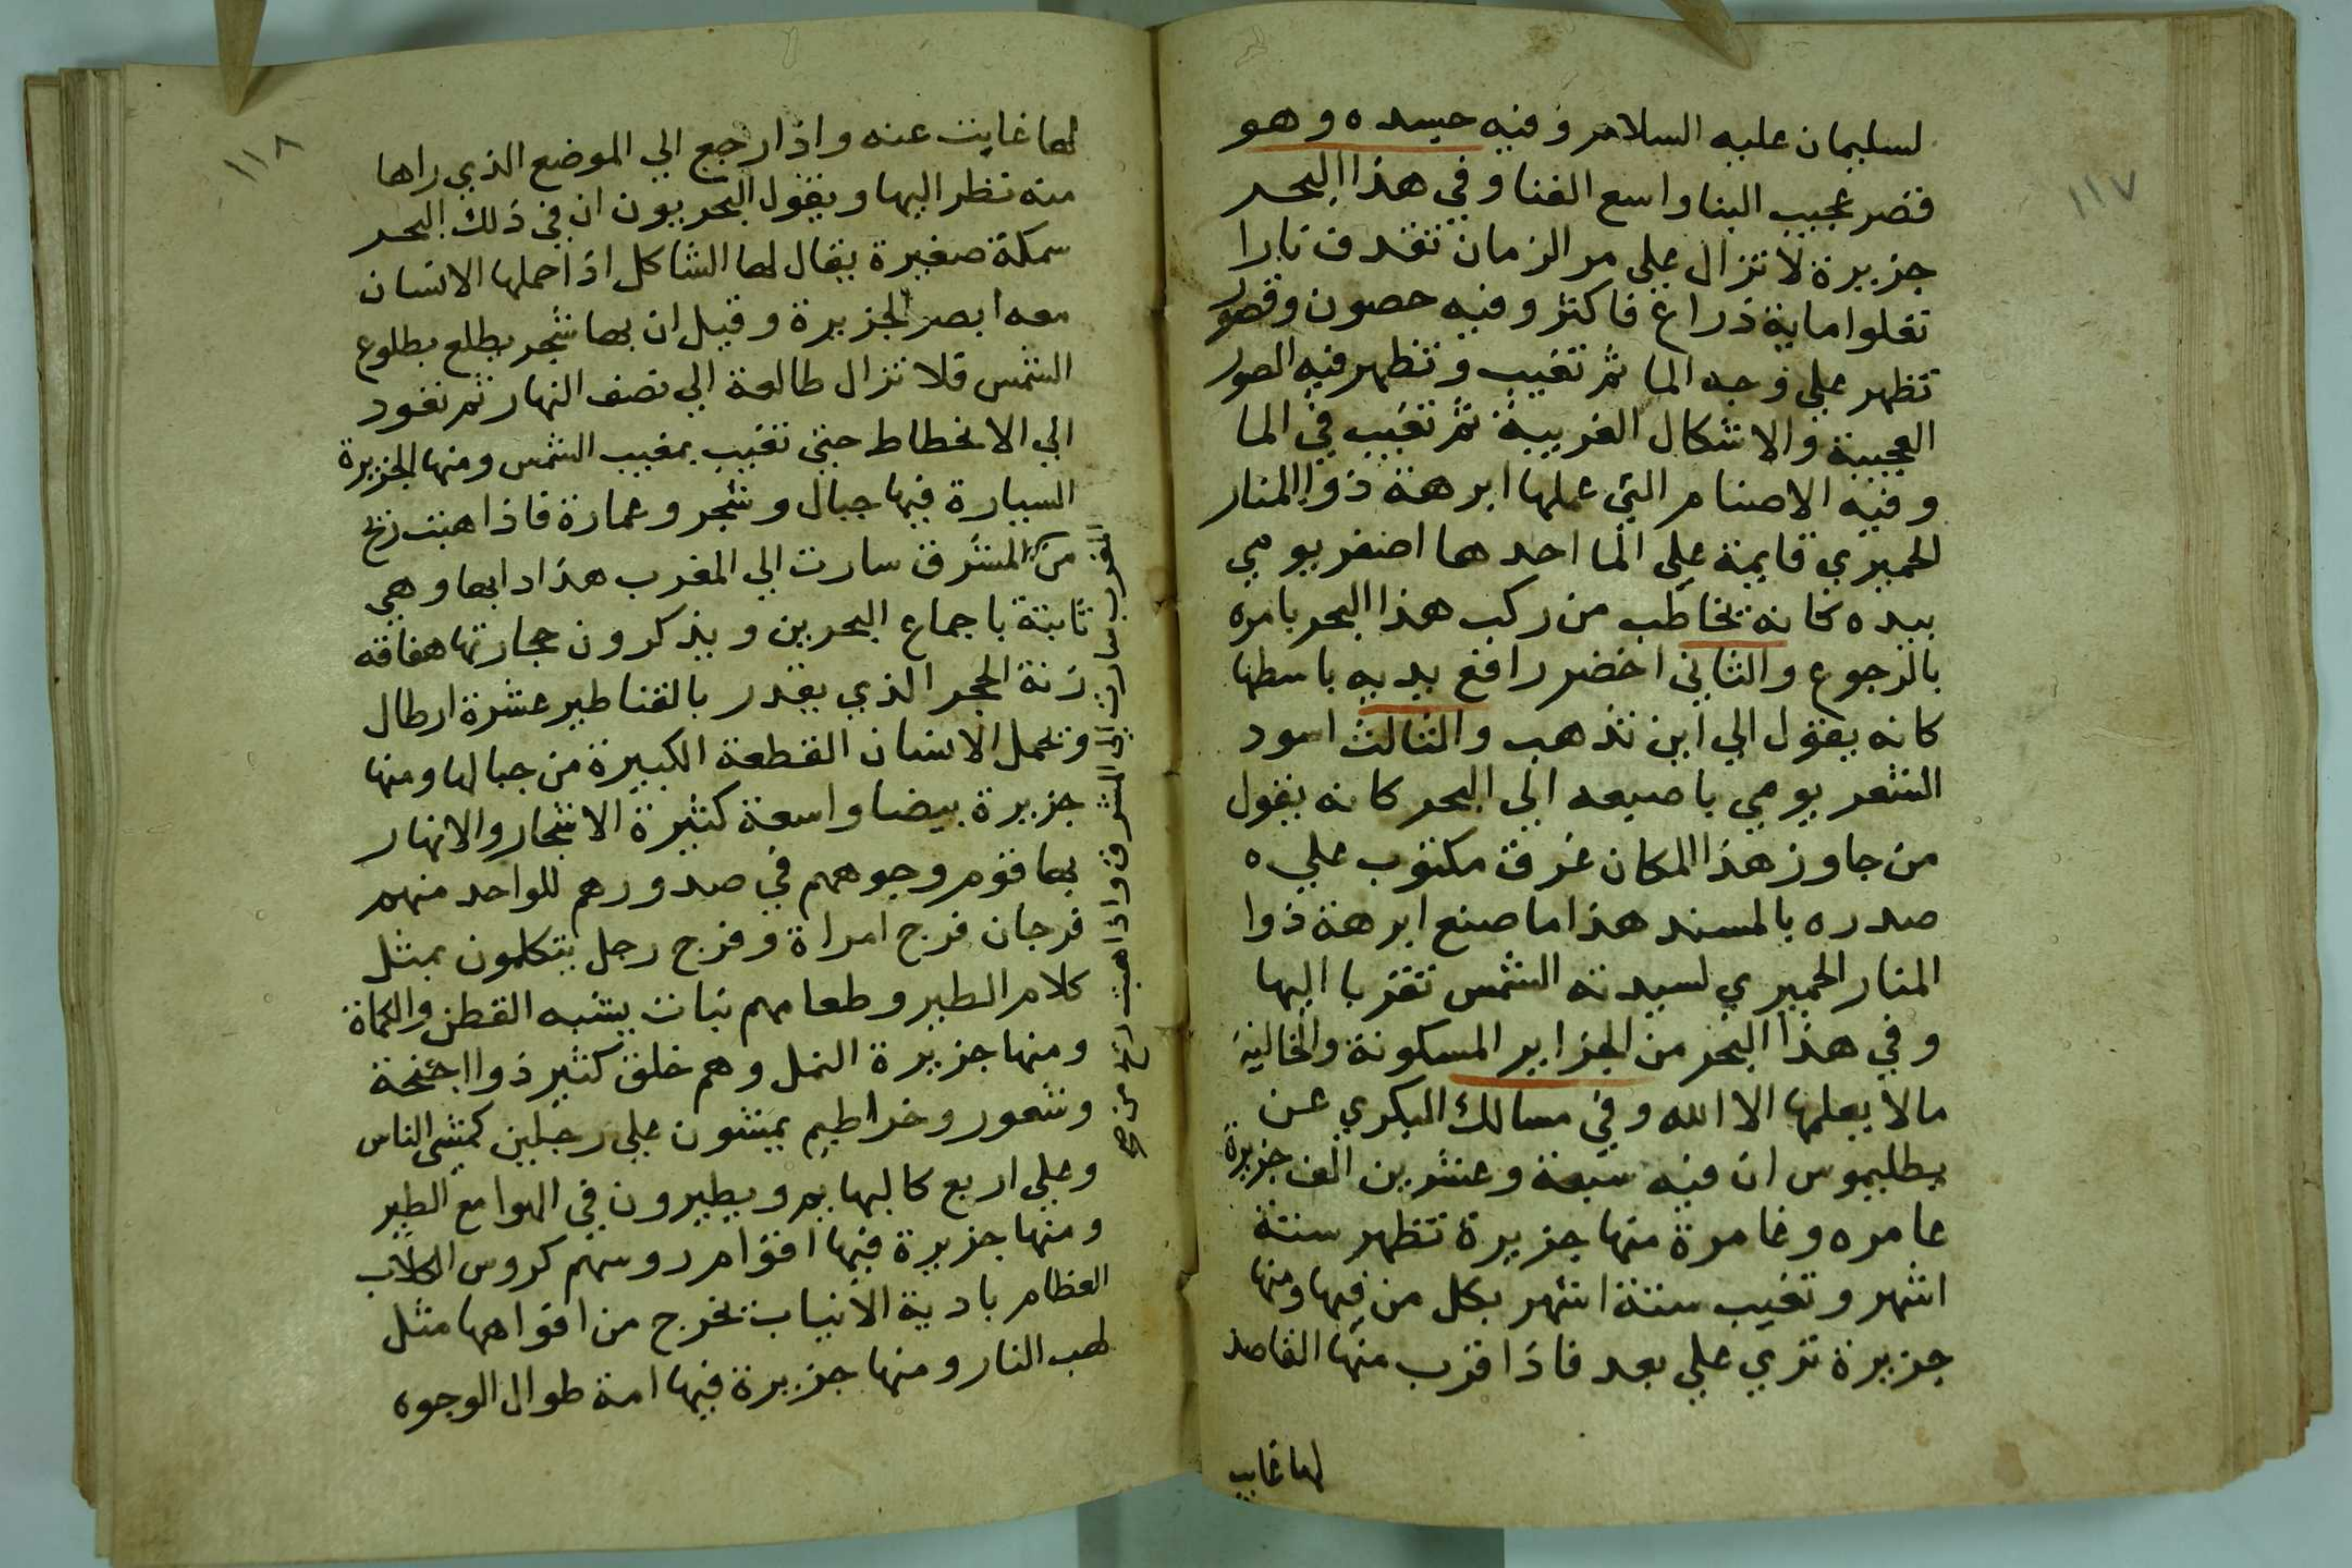 ١١٧
لسليمان عليه السلام وفيه جسده وهو
قصر عجيب البنا واسع الفنا وفي هذا البحر
جزيرة لا تزال علي مر الزمان تقدف نارا
تعلوا ماية ذراع فاكثر وفيه حصون وقصور
تظهر علي وجه الما ثم تغيب وتظهر فيه الصور
العجيبة والاشكال الغريبة ثم تغيب في الما
وفيه الاصنام التي عملها ابرهة ذوا المنار
الحميري قايمة علي الما احدهما اصفر يومي
بيده كانه يخاطب من ركب هذا البحر يامره
بالرجوع والثاني اخضر رافع يديه باسطها
كانه يقول الي اين تذهب والثالث اسود
الشعر يومي باصبعه الي البحر كانه يقول
من جاوز هذا المكان غرق مكتوب علي ه
صدره بالمسند هذا ما صنع ابرهة ذوا
المنار الحميري لسيدته الشمس تقربا اليها
وفي هذا البحر من الجزاير المسكونة والخالية
مالا يعلمها الا الله وفي مسالك البكري عن
بطليموس ان فيه سبعة وعشرين الف جزيرة
عامره وغامرة منها جزيرة تظهر ستة
اشهر وتغيب ستة اشهر بكل من فيها ومنها
جزيرة تري علي بعد فاذا قرب منها القاصد
لها غابت
١١٨
لها غابت عنه واذا رجع الي الموضع الذي راها
منه نظر اليها ويقول البحريون ان في ذلك البحر
سمكة صغيرة يقال لها الشاكل اذا حملها الانسان
معه ابصر الجزيرة وقيل ان بها شجر يطلع بطلوع
الشمس فلا تزال طالعة الي نصف النهار ثم تعود
الي الانحطاط حتي تغيب بمغيب الشمس ومنها الجزيرة
السيارة فيها جبال وشجر وعمارة فاذا هبت ريح
من المشرق سارت الي المغرب هذا دابها وهي
ثابتة باجماع البحرين ويذكرون حجارتها هفافه
زنة الحجر الذي يقدر بالقناطير عشرة ارطال
ويحمل الانسان القطعة الكبيرة من جبالها ومنها
جزيرة بيضا واسعة كثيرة الاشجار والانهار
بها قوم وجوههم في صدورهم للواحد منهم
فرجان فرج امراة وفرج رجل يتكلمون بمثل
كلام الطير وطعامهم نبات يشبه القطن والكماة
ومنها جزيرة النمل وهم خلق كثير ذوا اجنحة
وشعور وخراطيم يمشون علي رجلين كمشي الناس
وعلي اربع كالبهايم ويطيرون في الهوا مع الطير
ومنها جزيرة فيها اقوام روسهم كروس الكلاب
العظام بادية الانياب تخرج من افواهها مثل
لهب النار ومنها جزيرة فيها امة طوال الوجوه
المغرب سارت الي المشرق واذا هبت ريح من